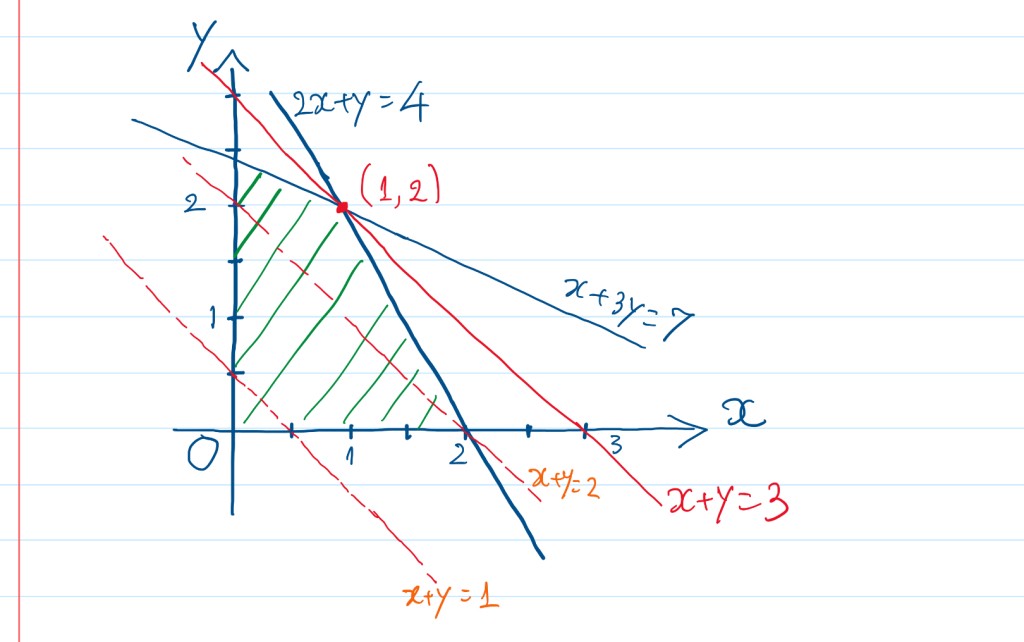 y
2x+y=4
(1,2)
2
x+3y=7
1
x
0
1
2
3
x+y=2
x+y=3
x+y=1